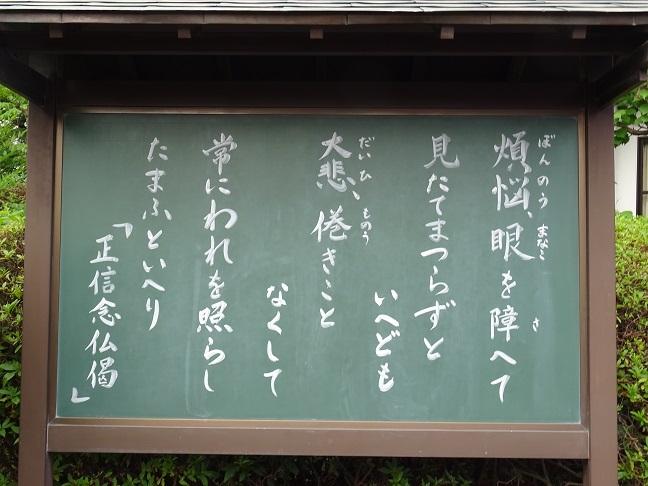 煩悩、眼を障へて
ぼんのう まなこ さ
見たてまつらずと
いへども
大悲、倦きこと
だいひ ものう
なくして
常にわれを照らし
たまふといへり
「正信念仏偈」